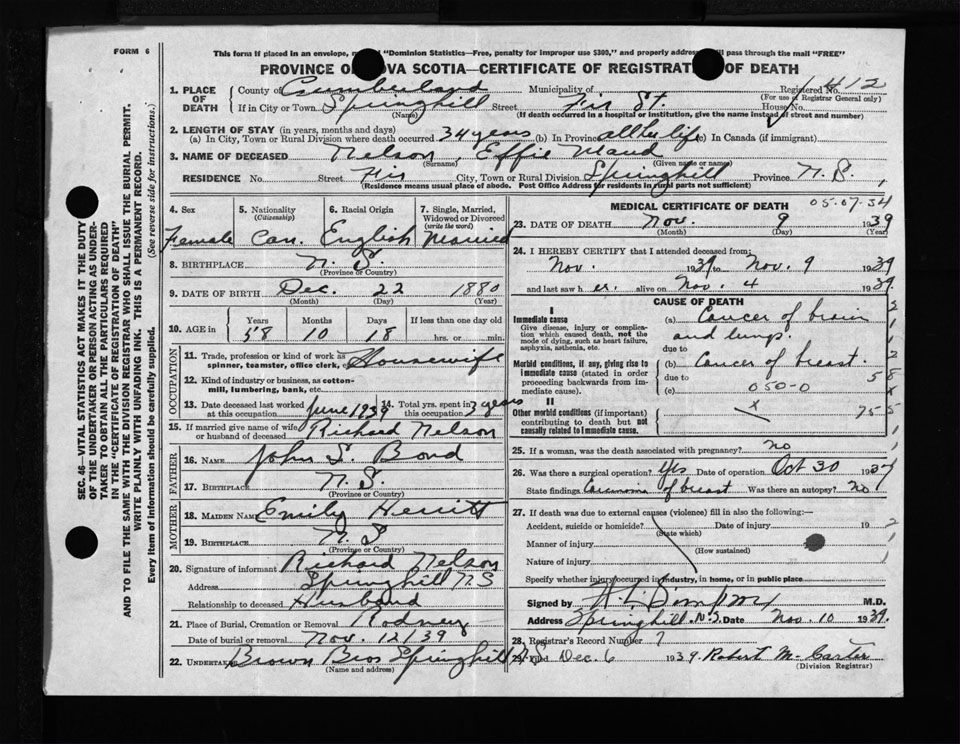 FORM 6
This form if placed in an envelope, "Dominion Statistics—Free, penalty for improper use $300," and properly address pass through the mail "FREE"
PROVINCE OF NOVA SCOTIA—CERTIFICATE OF REGISTRATION OF DEATH
1. PLACE OF DEATH County of Cumberland Municipality of Registered No. 1412
(For use of Registrar General only)
If in City or Town Springhill Street Fir St. House No.
(Name) (If death occurred in a hospital or institution, give the name instead of street and number)
2. LENGTH OF STAY (in years, months and days)
(a) In City, Town or Rural Division where death occurred 34 years (b) In Province all her life (c) in Canada (if immigrant)
3. NAME OF DECEASED Nelson, Effie Maud
(Surname) (Given name or names)
RESIDENCE No. Street Fir City, Town or Rural Division Springhill Province N.S.
(Residence means usual place of abode. Post Office Address for residents in rural parts not sufficient)
4. Sex 5. Nationality (Citizenship) 6. Racial Origin 7. Single, Married, Widowed or Divorced (write the word)
Female Can. English Married
8. BIRTHPLACE N.S.
(Province or Country)
9. DATE OF BIRTH Dec. 22 1880
(Month) (Day) (Year)
10. AGE in Years Months Days If less than one day old
58 10 18 hrs. or min.
OCCUPATION
11. Trade, profession or kind of work as spinner, teamster, office clerk, etc. Housewife
12. Kind of industry or business, as cotton-mill, lumbering, bank, etc.
13. Date deceased last worked at this occupation June 1939 14. Total yrs. spent in this occupation 3 years
15. If married give name of wife or husband of deceased Richard Nelson
FATHER
16. NAME John S. Bond
17. BIRTHPLACE N.S.
(Province or Country)
MOTHER
18. MAIDEN NAME Emily
19. BIRTHPLACE N.S
(Province or Country)
20. Signature of informant Richard Nelson
Address Springhill N S
Relationship to deceased Husband
21. Place of Burial, Cremation or Removal Rodney
Date of burial or removal Nov. 12/39
22. UNDERTAKER Brown Bros Springhill N.S.
(Name and address)
MEDICAL CERTIFICATE OF DEATH 05.07.34
23. DATE OF DEATH Nov. 9 1939
(Month) (Day) (Year)
24. I HEREBY CERTIFY that I attended deceased from:
Nov. 1939 to Nov. 9 1939
and last saw h er. alive on Nov. 4 1939
CAUSE OF DEATH
I
Immediate cause (a) Cancer of brain
Give disease, injury or complication which caused death, not the mode of dying, such as heart failure, asphyxia, asthenia, etc.
and lungs.
due to
Morbid conditions, if any, giving rise to immediate cause (stated in order proceeding backwards from immediate cause).
(b) Cancer of breast.
due to
(c) 050-0
II
Other morbid conditions (if important) contributing to death but not causally related to immediate cause.
25. If a woman, was the death associated with pregnancy? no
26. Was there a surgical operation? Yes Date of operation Oct 30 1937
State findings Carcinoma of breast Was there an autopsy? No
27. If death was due to external causes (violence) fill in also the following:—
Accident, suicide or homicide? Date of injury 19
(State which)
Manner of injury
(How sustained)
Nature of injury
Specify whether injury occurred in industry, in home, or in public place
Signed by M.D.
Address Springhill N.S. Date Nov. 10 1939.
28. Registrar's Record Number 7
29. Filed Dec. 6 1939 Robert M. Carter
(Division Registrar)
(and registrar)
SEC. 46—VITAL STATISTICS ACT MAKES IT THE DUTY
OF THE UNDERTAKER OR PERSON ACTING AS UNDER-
TAKER TO OBTAIN ALL THE PARTICULARS REQUIRED
IN THE "CERTIFICATE OF REGISTRATION OF DEATH"
AND TO FILE THE SAME WITH THE DIVISION REGISTRAR WHO SHALL ISSUE THE BURIAL PERMIT.
WRITE PLAINLY WITH UNFADING INK. THIS IS A PERMANENT RECORD.
Every item of information should be carefully supplied. (See reverse side for instructions.)